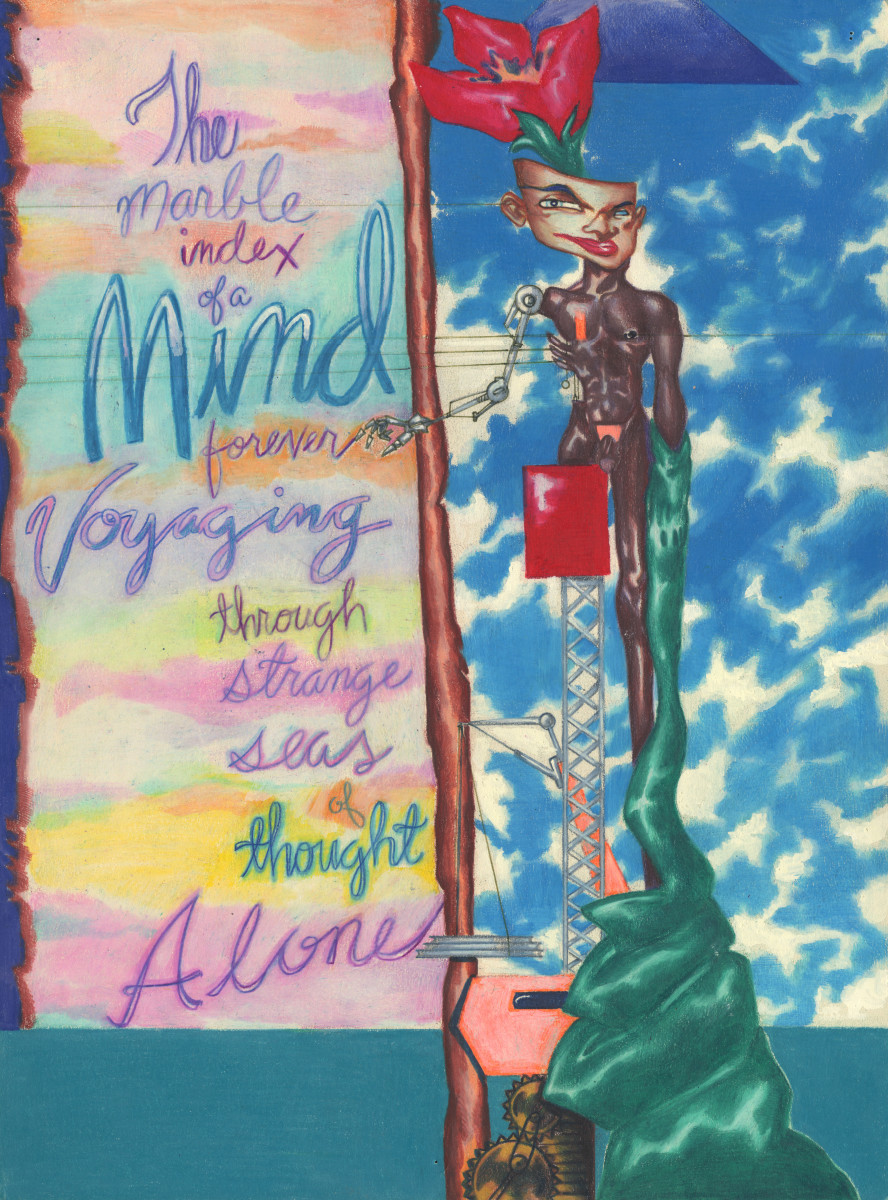 The
marble
index
of a
Mind
forever
Voyaging
through
strange
seas
of
thought
Alone